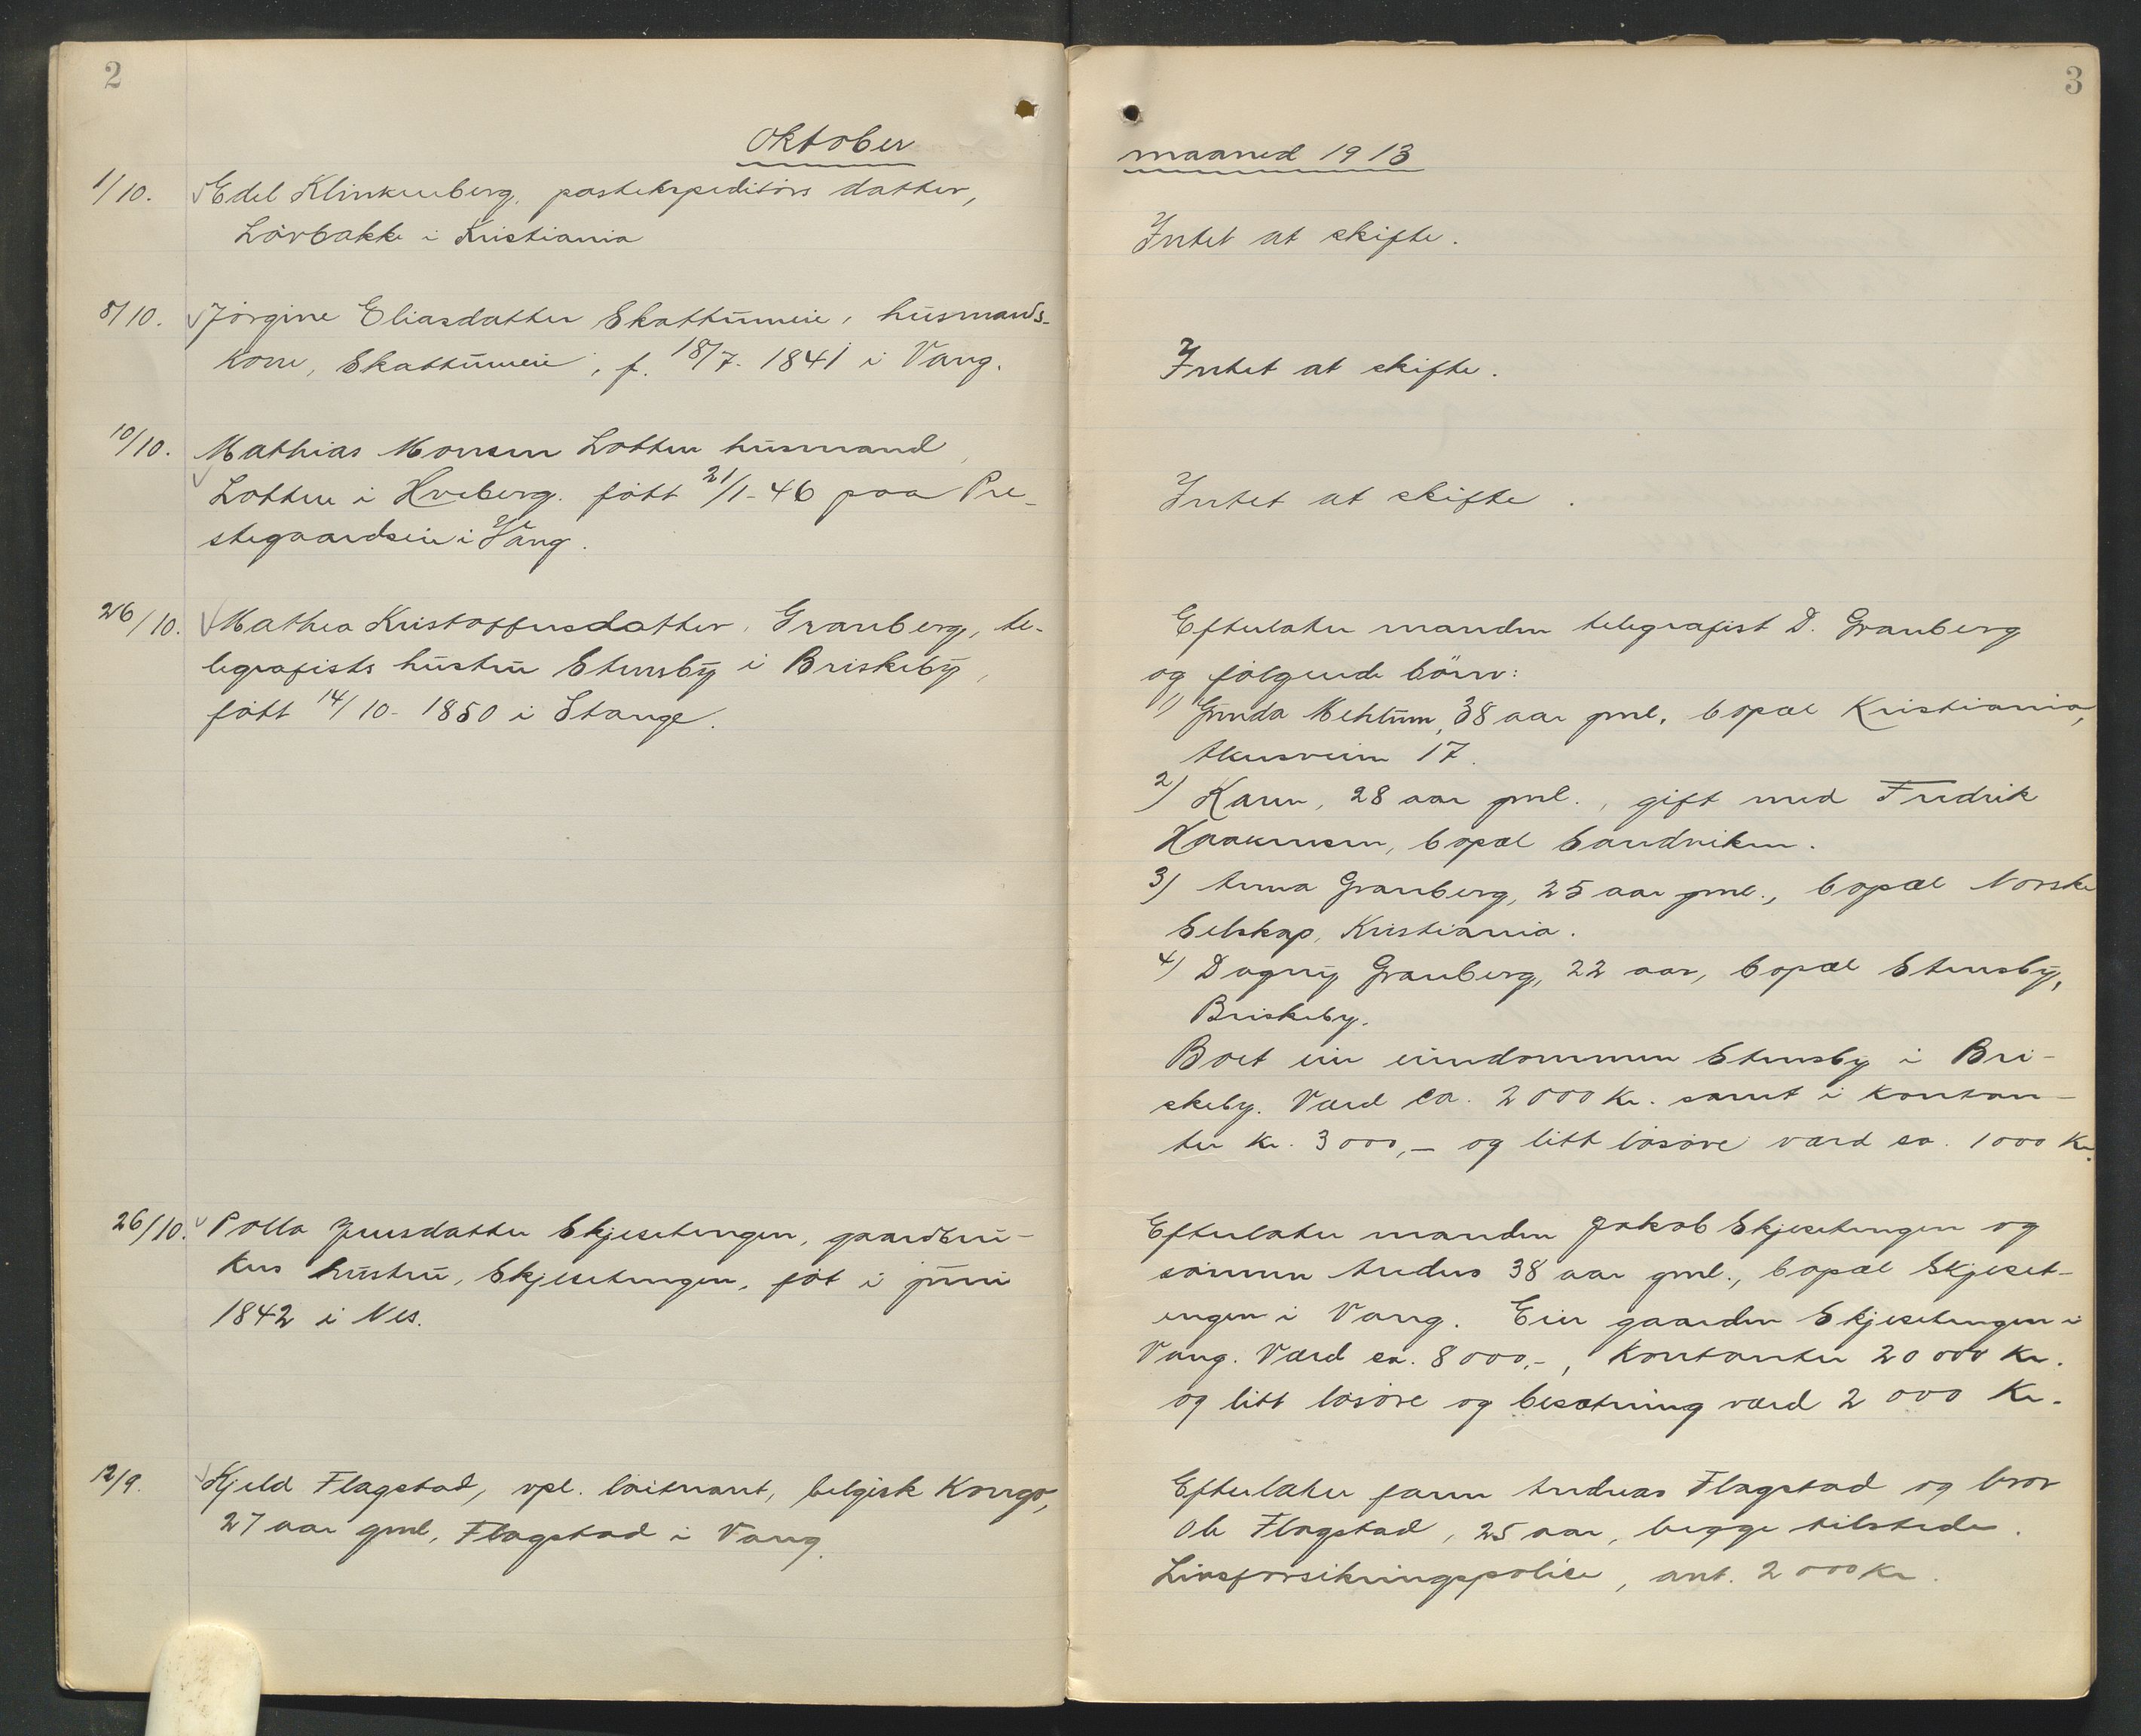 2
Oktober
1/10. Edel Klinkenberg, postekspeditørs datter,
Lövbakke i Kristiania
8/10. Jörgine Eliasdatter Skattumeie, husmands-
kone, Skattumeie, f. 18/7- 1841 i Vang.
10/10. Mathias Monsen Lotten husmand,
Lotten i Hveberg. född 21/1-46 paa Pre-
stegaardseie i Vang.
26/10. Mathea Kristoffersdatter Granberg, te-
legrafists hustru Stensby i Briskeby,
fött 14/10- 1850 i Stange.
26/10. Polla Jensdatter Skjesetengen, gaardbru-
kers hustru, Skjesetengen,föt i juni
1842 i Nes.
12/9. Kjeld Flagstad, vpl. löitnant, belgisk Kongo,
27 aar gml, Flagstad i Vang.
3
maaned 1913
Intet at skifte.
Intet at skifte.
Intet at skifte.
Efterlater manden telegrafist D. Granberg
og fölgende börn:
1) Gunda Mehlum, 38 aar gml, bopæl Kristiania,
Akersveien 17.
2) Karen, 28 aar gml., gift med Fredrik
Haakensen, bopæl Sandviken.
3) Anna Granberg, 25 aar gml., bopæl Norske
Selskap, Kristiania.
4) Dagny Granberg, 22 aar, bopæl Stensby,
Briskeby.
Boet eier eiendommen Stensby i Bri-
skeby. Værd ca. 2000 Kr. samt i kontan-
ter Kr. 3000,- og litt lösöre værd ca. 1000 Kr.
Efterlater manden Jakob Skjesetengen og
sönnen Andreas 38 aar gml., bopæl Skjeset-
engen i Vang. Eier gaarden Skjesetengen i
Vang. Værd ca. 8000,-, Kontanter 20000 Kr.
og litt lösöre og besætning værd 2000 Kr.
Efterlater faren Andreas Flagstad og bror
Ole Flagstad, 25 aar, begge tilstede.
Livsforsikringspolice, ant. 2000 Kr.